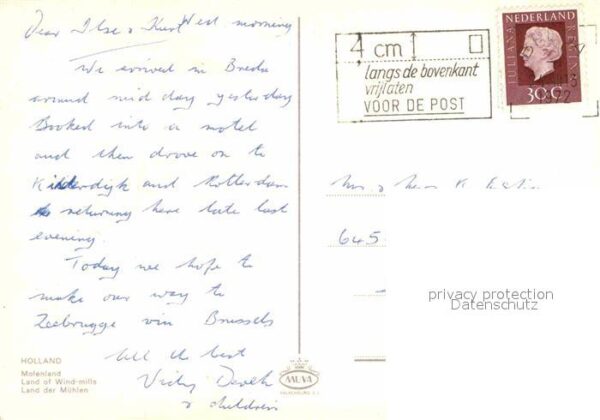 Dear Ilse & Kurt Wed morning
We arrived in Breda
around mid day yesterday
Booked into a motel
and then drove on to
Kinderdijk and Rotterdam
returning here late last
evening.
Today we hope to
make our way to
Zeebrugge via Brussels
All the best
Vicky
& children
HOLLAND
Molenland
Land of Wind-mills
Land der Mühlen
MUVA
VALKENBURG Z.L.
4 cm
langs de bovenkant
vrijlaten
VOOR DE POST
NEDERLAND
JULIANA REGINA
30c
Mr & Mrs K
645
privacy protection
Datenschutz